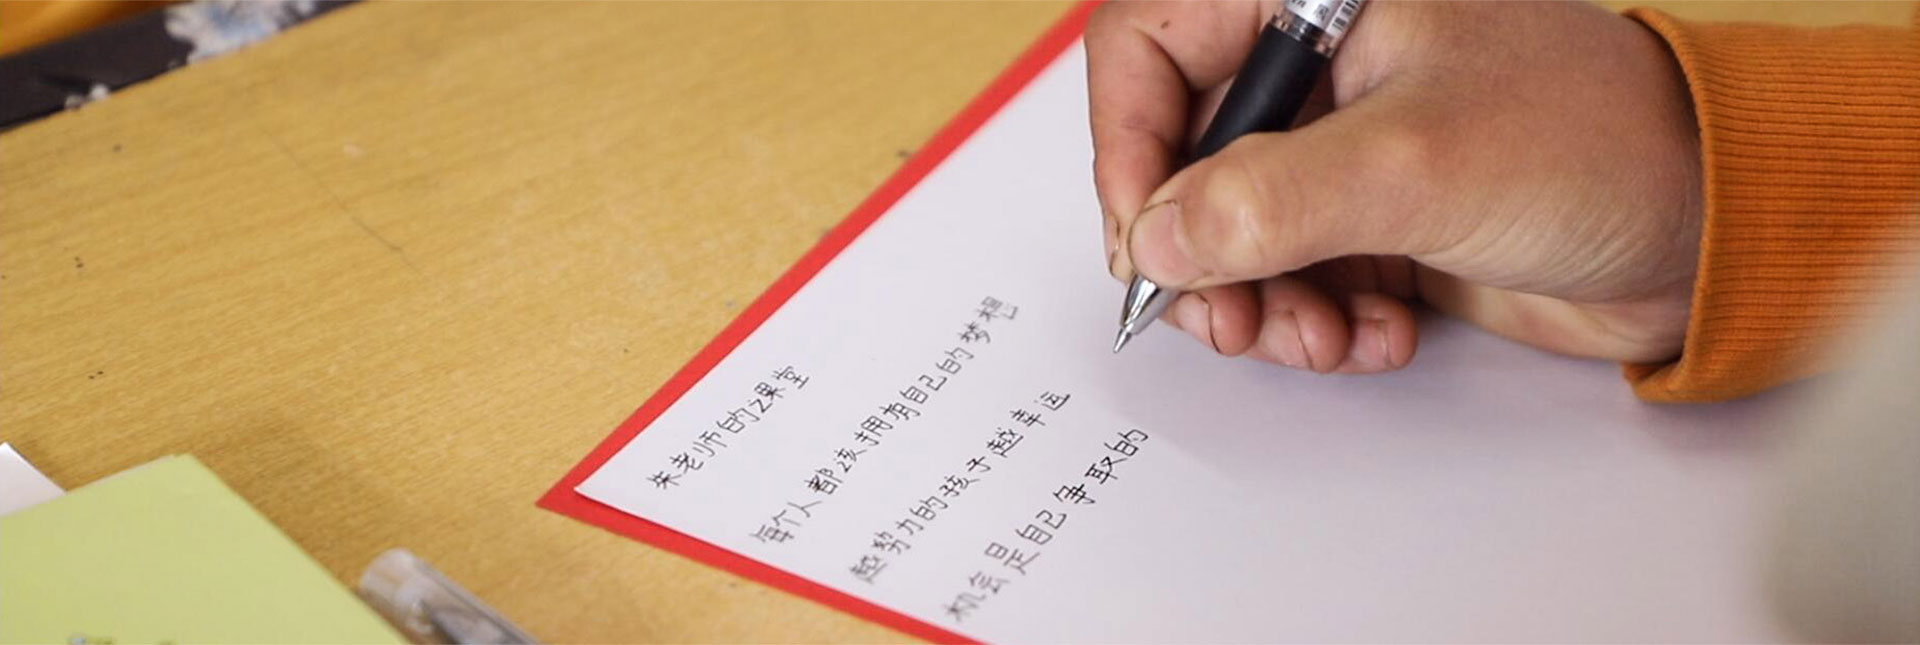 朱老师的课堂
每个人都该拥有自己的梦想
越努力的孩子越幸运
机会是自己争取的